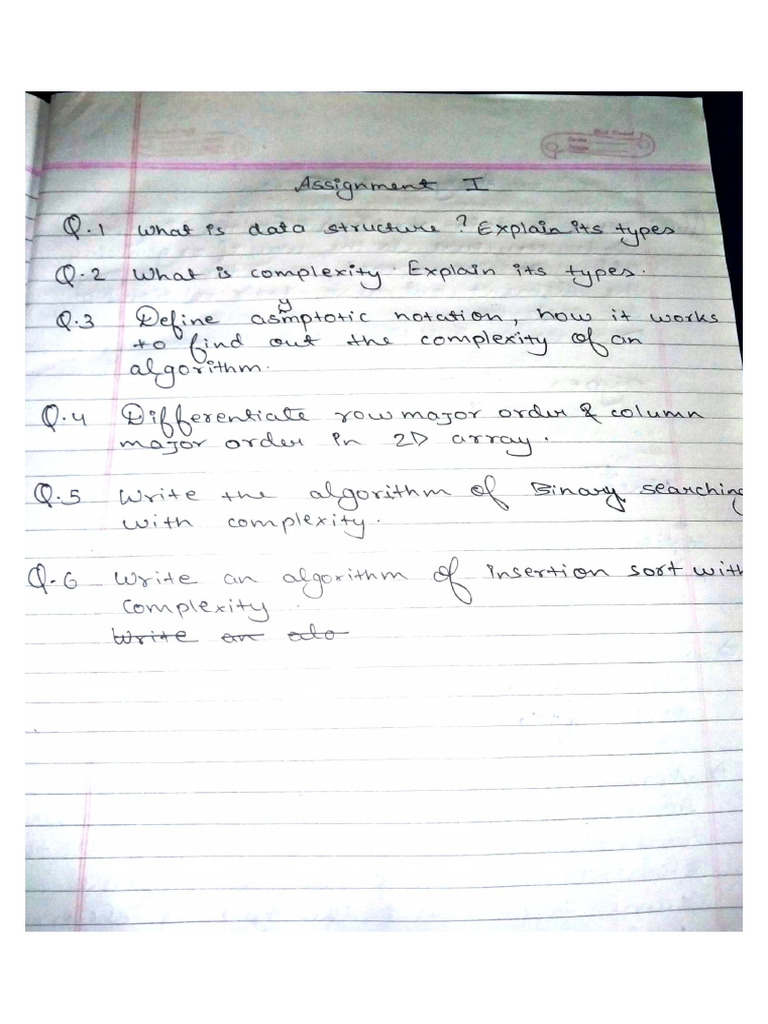 Assignment I
Q.1 What is data structure? Explain its types
Q.2 What is complexity. Explain its types.
Q.3 Define asymptotic notation, how it works
to find out the complexity of an
algorithm.
Q.4 Differentiate row major order & column
major order in 2D array.
Q.5 Write the algorithm of Binary searching
with complexity.
Q.6 Write an algorithm of insertion sort with
complexity
Write an alo